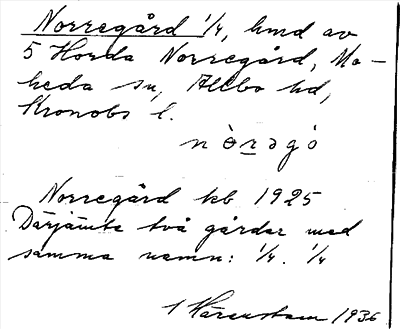 Norregård ¼, hmd av
5 Horda Norregård, Mo-
heda sn, Allbo hd,
Kronobs l.
nòrəgó
Norregård kb 1925
Därjämte två gårdar med
samma namn: ¼. ¼
Härenstam 1936